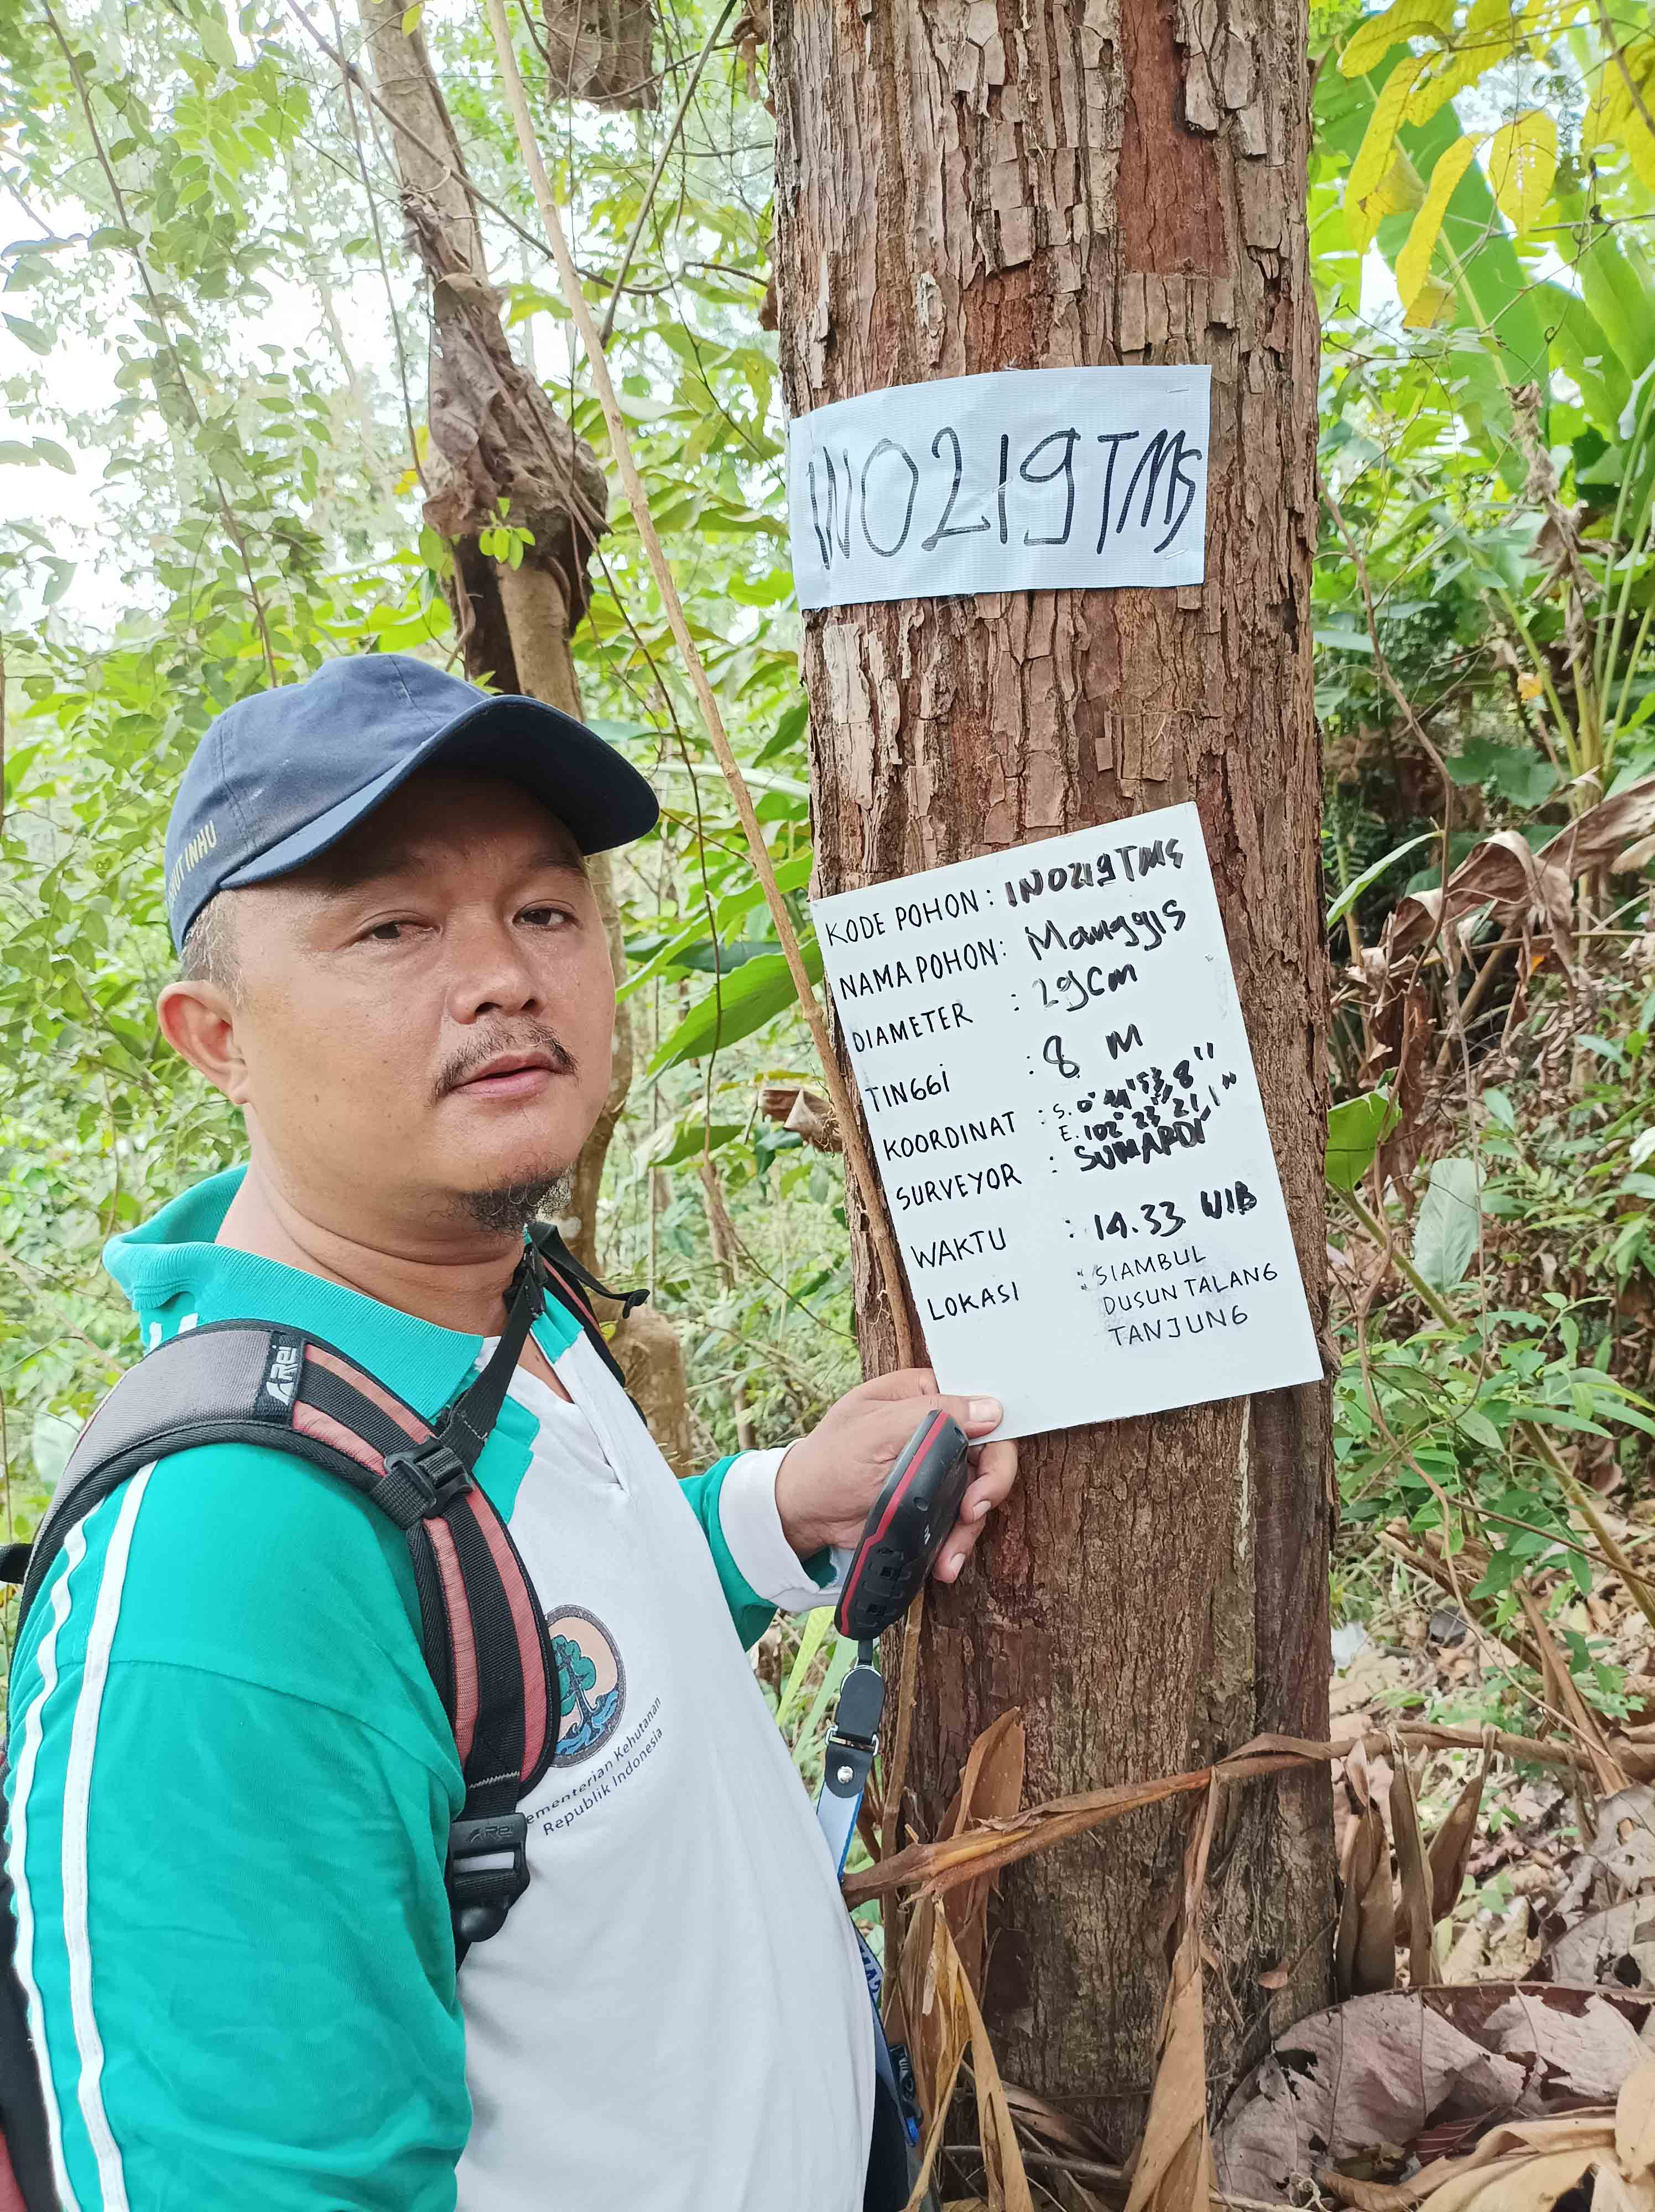 IN0219TMS
KODE POHON : IN0219TMS
NAMA POHON : Manggis
DIAMETER : 29 cm
TINGGI : 8 M
KOORDINAT : S. 0° 44' 53,8"
E. 102° 23' 21,1"
SURVEYOR : SUMARDI
WAKTU : 14.33 WIB
LOKASI : SIAMBUL
DUSUN TALANG
TANJUNG
INHU
Rei
ementerian Kehutanan
Republik Indonesia
Rei